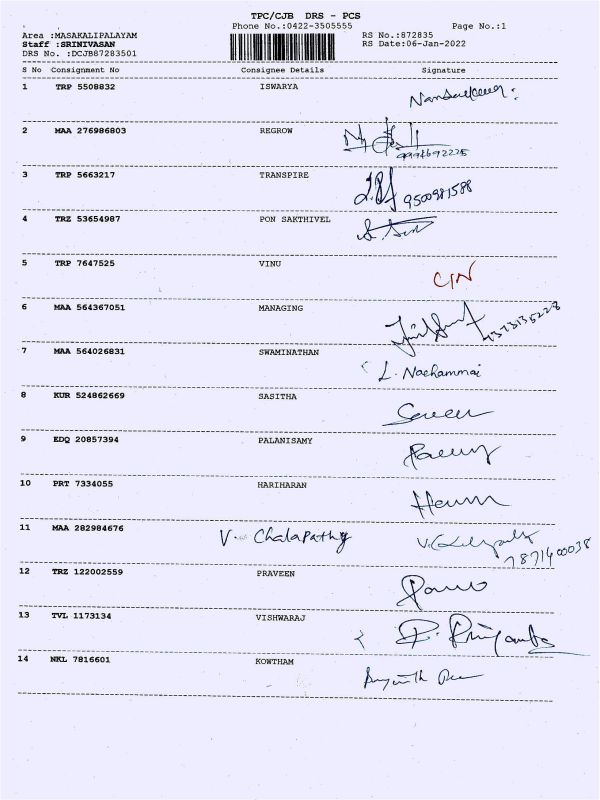 TPC/CJB DRS - PCS
Phone No.:0422-3505555 Page No.:1
Area :MASAKALIPALAYAM RS No.:872835
Staff :SRINIVASAN RS Date:06-Jan-2022
DRS No. :DCJB87283501
S No Consignment No Consignee Details Signature
1 TRP 5508832 ISWARYA
2 MAA 276986803 REGROW
9994692225
3 TRP 5663217 TRANSPIRE 9500981588
4 TRZ 53654987 PON SAKTHIVEL
5 TRP 7647525 VINU
6 MAA 564367051 MANAGING
7 MAA 564026831 SWAMINATHAN
L. Nachammai
8 KUR 524862669 SASITHA
9 EDQ 20857394 PALANISAMY
10 PRT 7334055 HARIHARAN
11 MAA 282984676 V. Chalapathy
7871400038
12 TRZ 122002559 PRAVEEN
13 TVL 1173134 VISHWARAJ
14 NKL 7816601 KOWTHAM